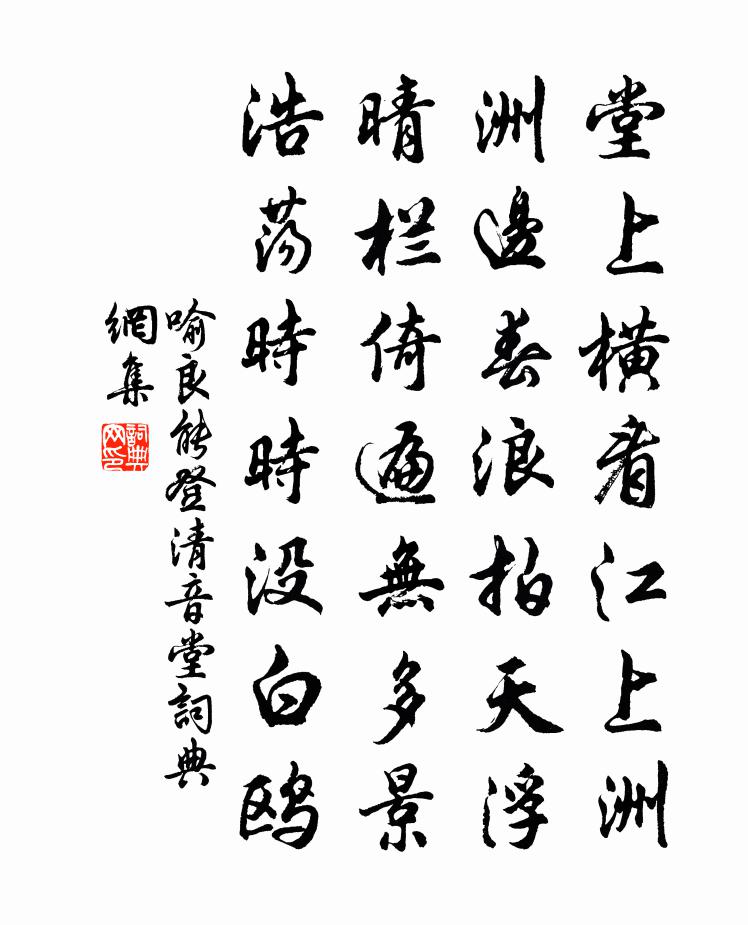 堂上橫看江上洲
洲邊春浪拍天浮
晴栏倚遍無多景
浩荡時時没白鸥
喻良能登清音堂詞典
網集
詞典
网印